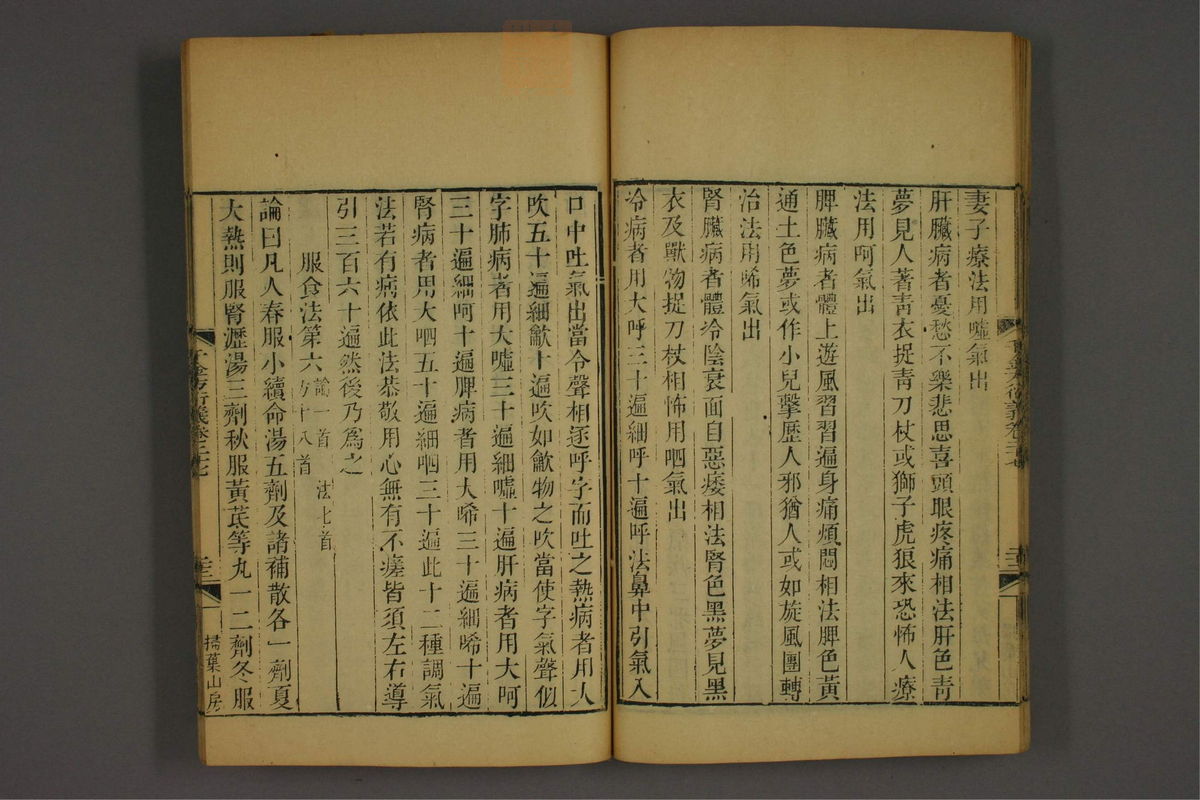 妻子療法用噓氣出
肝臟病者憂愁不樂悲思喜頭眼疼痛相法肝色青
夢見人著靑衣捉靑刀杖或獅子虎狼來恐怖人療
法用呵氣出
脾臟病者體上遊風習習遍身痛煩悶相法脾色黃
通土色夢或作小兒擊歷人邪猶人或如旋風團轉
治法用唏氣出
腎臟病者體冷陰衰面目惡痿相法腎色黑夢見黑
衣及獸物捉刀杖相怖用呬氣出
冷病者用大呼三十遍細呼十遍呼法鼻中引氣入
口中吐氣出當令聲相逐呼字而吐之熱病者用大
吹五十遍細歙十遍吹如歙物之吹當使字氣聲似
字肺病者用大噓三十遍細噓十遍肝病者用大呵
三十遍細呵十遍脾病者用大唏三十遍細唏十遍
腎病者用大呬五十遍細呬三十遍此十二種調氣
法若有病依此法恭敬用心無有不瘥皆須左右導
引三百六十遍然後乃爲之
服食法第六 論一首 法七首 方十八首
論曰凡人春服小續命湯五劑及諸補散各一劑夏
大熱則服腎瀝湯三劑秋服黃芪等丸一二劑冬服
掃葉山房